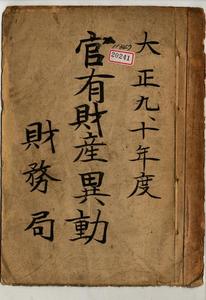 大正九、十年度
官有財産異動
財務局
20241